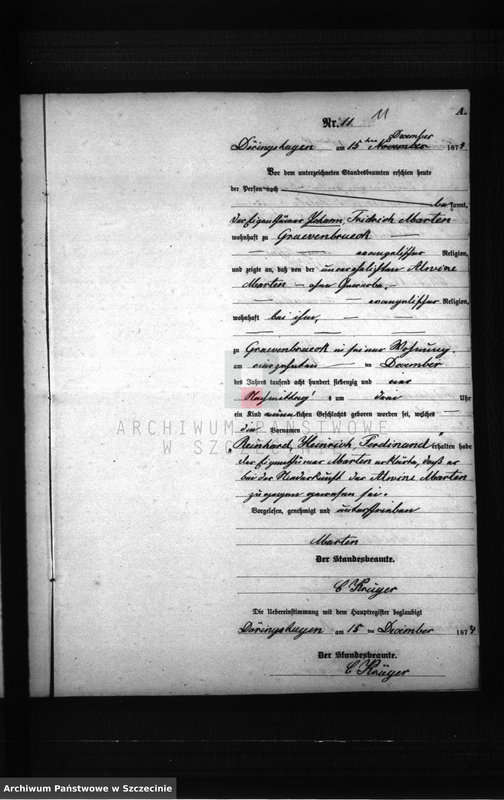 A.
Nr. 11. 11
December
Düringshagen am 15 ten November 1874
Vor dem unterzeichneten Standesbeamten erschien heute
der Person nach
bekannt,
der Eigenthümer Johann, Fridrich Marten
wohnhaft zu Graevenbrueck
evangelischer Religion,
und zeigte an, daß von der unverehelichten Alwine
Marten – ohne Gewerbe, –
evangelischer Religion,
wohnhaft bei ihm,
zu Graevenbrueck in seiner Wohnung,
am ten December
des Jahres tausend acht hundert siebenzig und
Nachmittags um Uhr
ein Kind männlichen Geschlechts geboren worden sei, welches
die Vornamen
Reinhard, Heinrich, Ferdinand, erhalten habe
der Eigenthümer Marten erklärte, daß er
bei der Niederkunft der Alwine Marten
zugegen gewesen sei.
Vorgelesen, genehmigt und unterschrieben
Marten
Der Standesbeamte.
C Krüger
Die Uebereinstimmung mit dem Hauptregister beglaubigt
Düringshagen am 15 ten December 1874
Der Standesbeamte.
C Krüger
ARCHIWUM PAŃSTWOWE
W SZCZECINIE
Archiwum Państwowe w Szczecinie